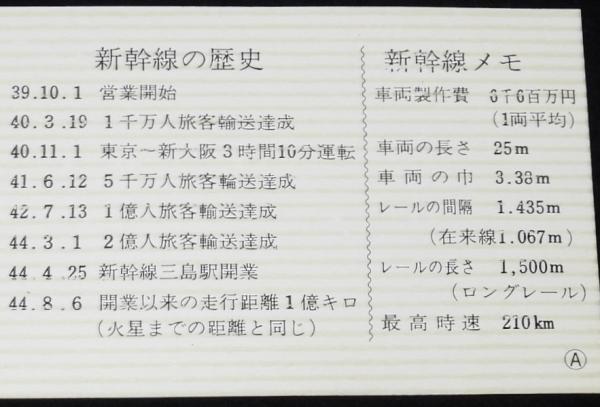 新幹線の歴史
39.10.1 営業開始
40.3.19 1千万人旅客輸送達成
40.11.1 東京〜新大阪3時間10分運転
41.6.12 5千万人旅客輸送達成
42.7.13 1億人旅客輸送達成
44.3.1 2億人旅客輸送達成
44.4.25 新幹線三島駅開業
44.8.6 開業以来の走行距離1億キロ
(火星までの距離と同じ)
新幹線メモ
車両製作費 6千6百万円
(1両平均)
車両の長さ 25m
車両の巾 3.38m
レールの間隔 1.435m
(在来線1.067m)
レールの長さ 1,500m
(ロングレール)
最高時速 210km
Ⓐ